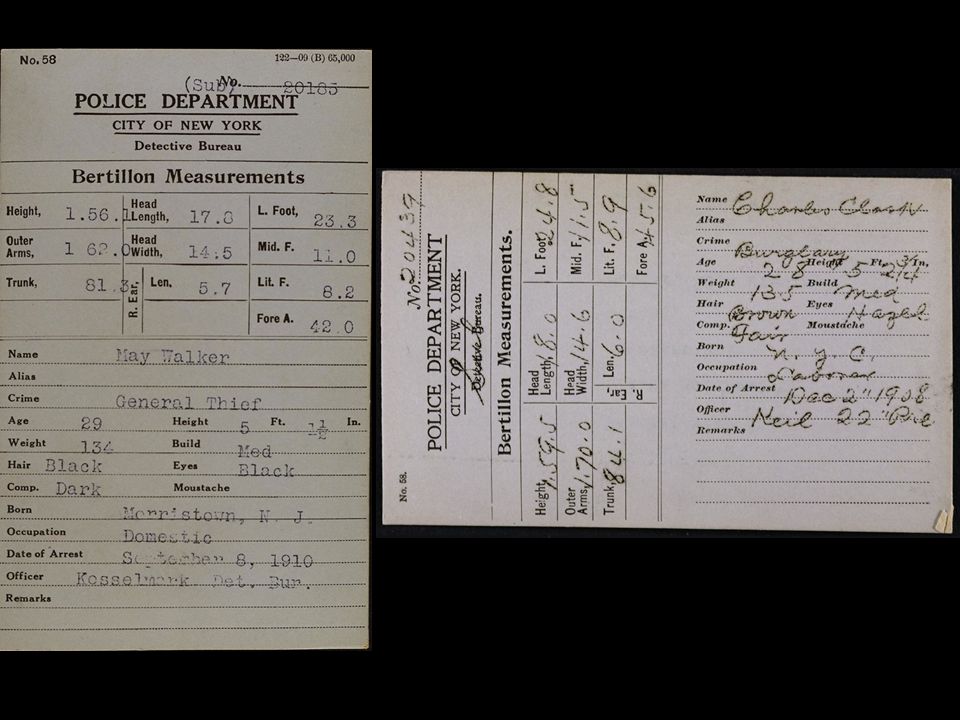 No. 58 122—09 (B) 65,000
(Sub) No. 20185
POLICE DEPARTMENT
CITY OF NEW YORK
Detective Bureau
Bertillon Measurements
Height, 1.56.1 Head Length, 17.8 L. Foot, 23.3
Outer Arms, 1 62.0 Head Width, 14.5 Mid. F. 11.0
Trunk, 81.3 R. Ear, Len. 5.7 Lit. F. 8.2
Fore A. 42.0
Name May Walker
Alias
Crime General Thief
Age 29 Height 5 Ft. 1½ In.
Weight 134 Build Med
Hair Black Eyes Black
Comp. Dark Moustache
Born Morristown, N. J.
Occupation Domestic
Date of Arrest September 8, 1910
Officer Kosselmark Det. Bur.
Remarks
No. 58. No. 20439
POLICE DEPARTMENT
CITY OF NEW YORK.
Detective Bureau.
Bertillon Measurements.
Height, 1.59.5 Head Length, 18.0 L. Foot, 24.8
Outer Arms, 1.70.0 Head Width, 14.6 Mid. F. 11.5
Trunk, 84.1 R. Ear, Len. 6.0 Lit. F. 8.9
Fore A. 45.6
Name Charles Clark
Alias
Crime Burglary
Age 28 Height 5 Ft. 2¾ In.
Weight 135 Build Med
Hair Brown Eyes Hazel
Comp. Fair Moustache
Born N. Y. C.
Occupation Laborer
Date of Arrest Dec 2" 1908
Officer Keil 22" Pre
Remarks